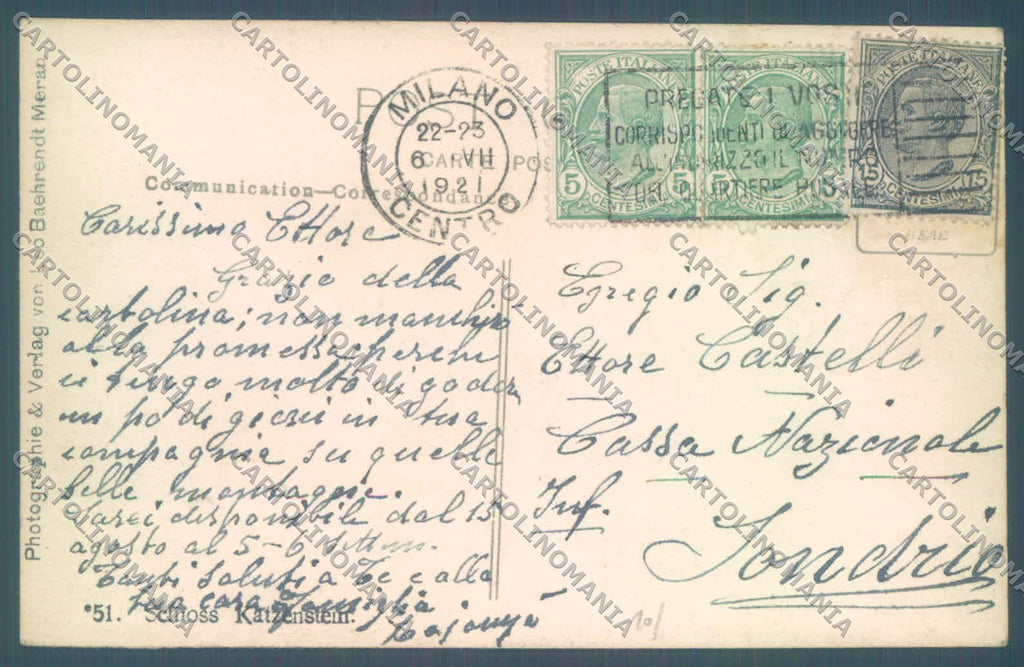 Photographie & Verlag von Leo Baehrendt Meran.
POST
CARTE POS
Communication—Correspondance
MILANO
22-23
6 VII
1921
CENTRO
POSTE ITALIANE
5 5
CENTESIMI
POSTE ITALIANE
5
CENTESIMI
POSTE ITALIANE
15 15
CENTESIMI
PREGATE I VOSTRI
CORRISPONDENTI DI AGGIUNGERE
ALL'INDIRIZZO IL NUMERO
DEL QUARTIERE POSTALE
HERE
Carissimo Ettore
Grazie della
cartolina; non mancherò
alla promessa perchè
ci tengo molto di goder
un po di giorni in tua
compagnia su quelle
belle montagne.
Sarei disponibile dal 15
agosto al 5-6 settem.
Tanti saluti a Te e alla
tua cara famiglia
Egregio Sig.
Ettore Castelli
Cassa Nazionale
Inf.
Sondrio
51. Schloss Katzenstein.
10/
CARTOLINOMANIA